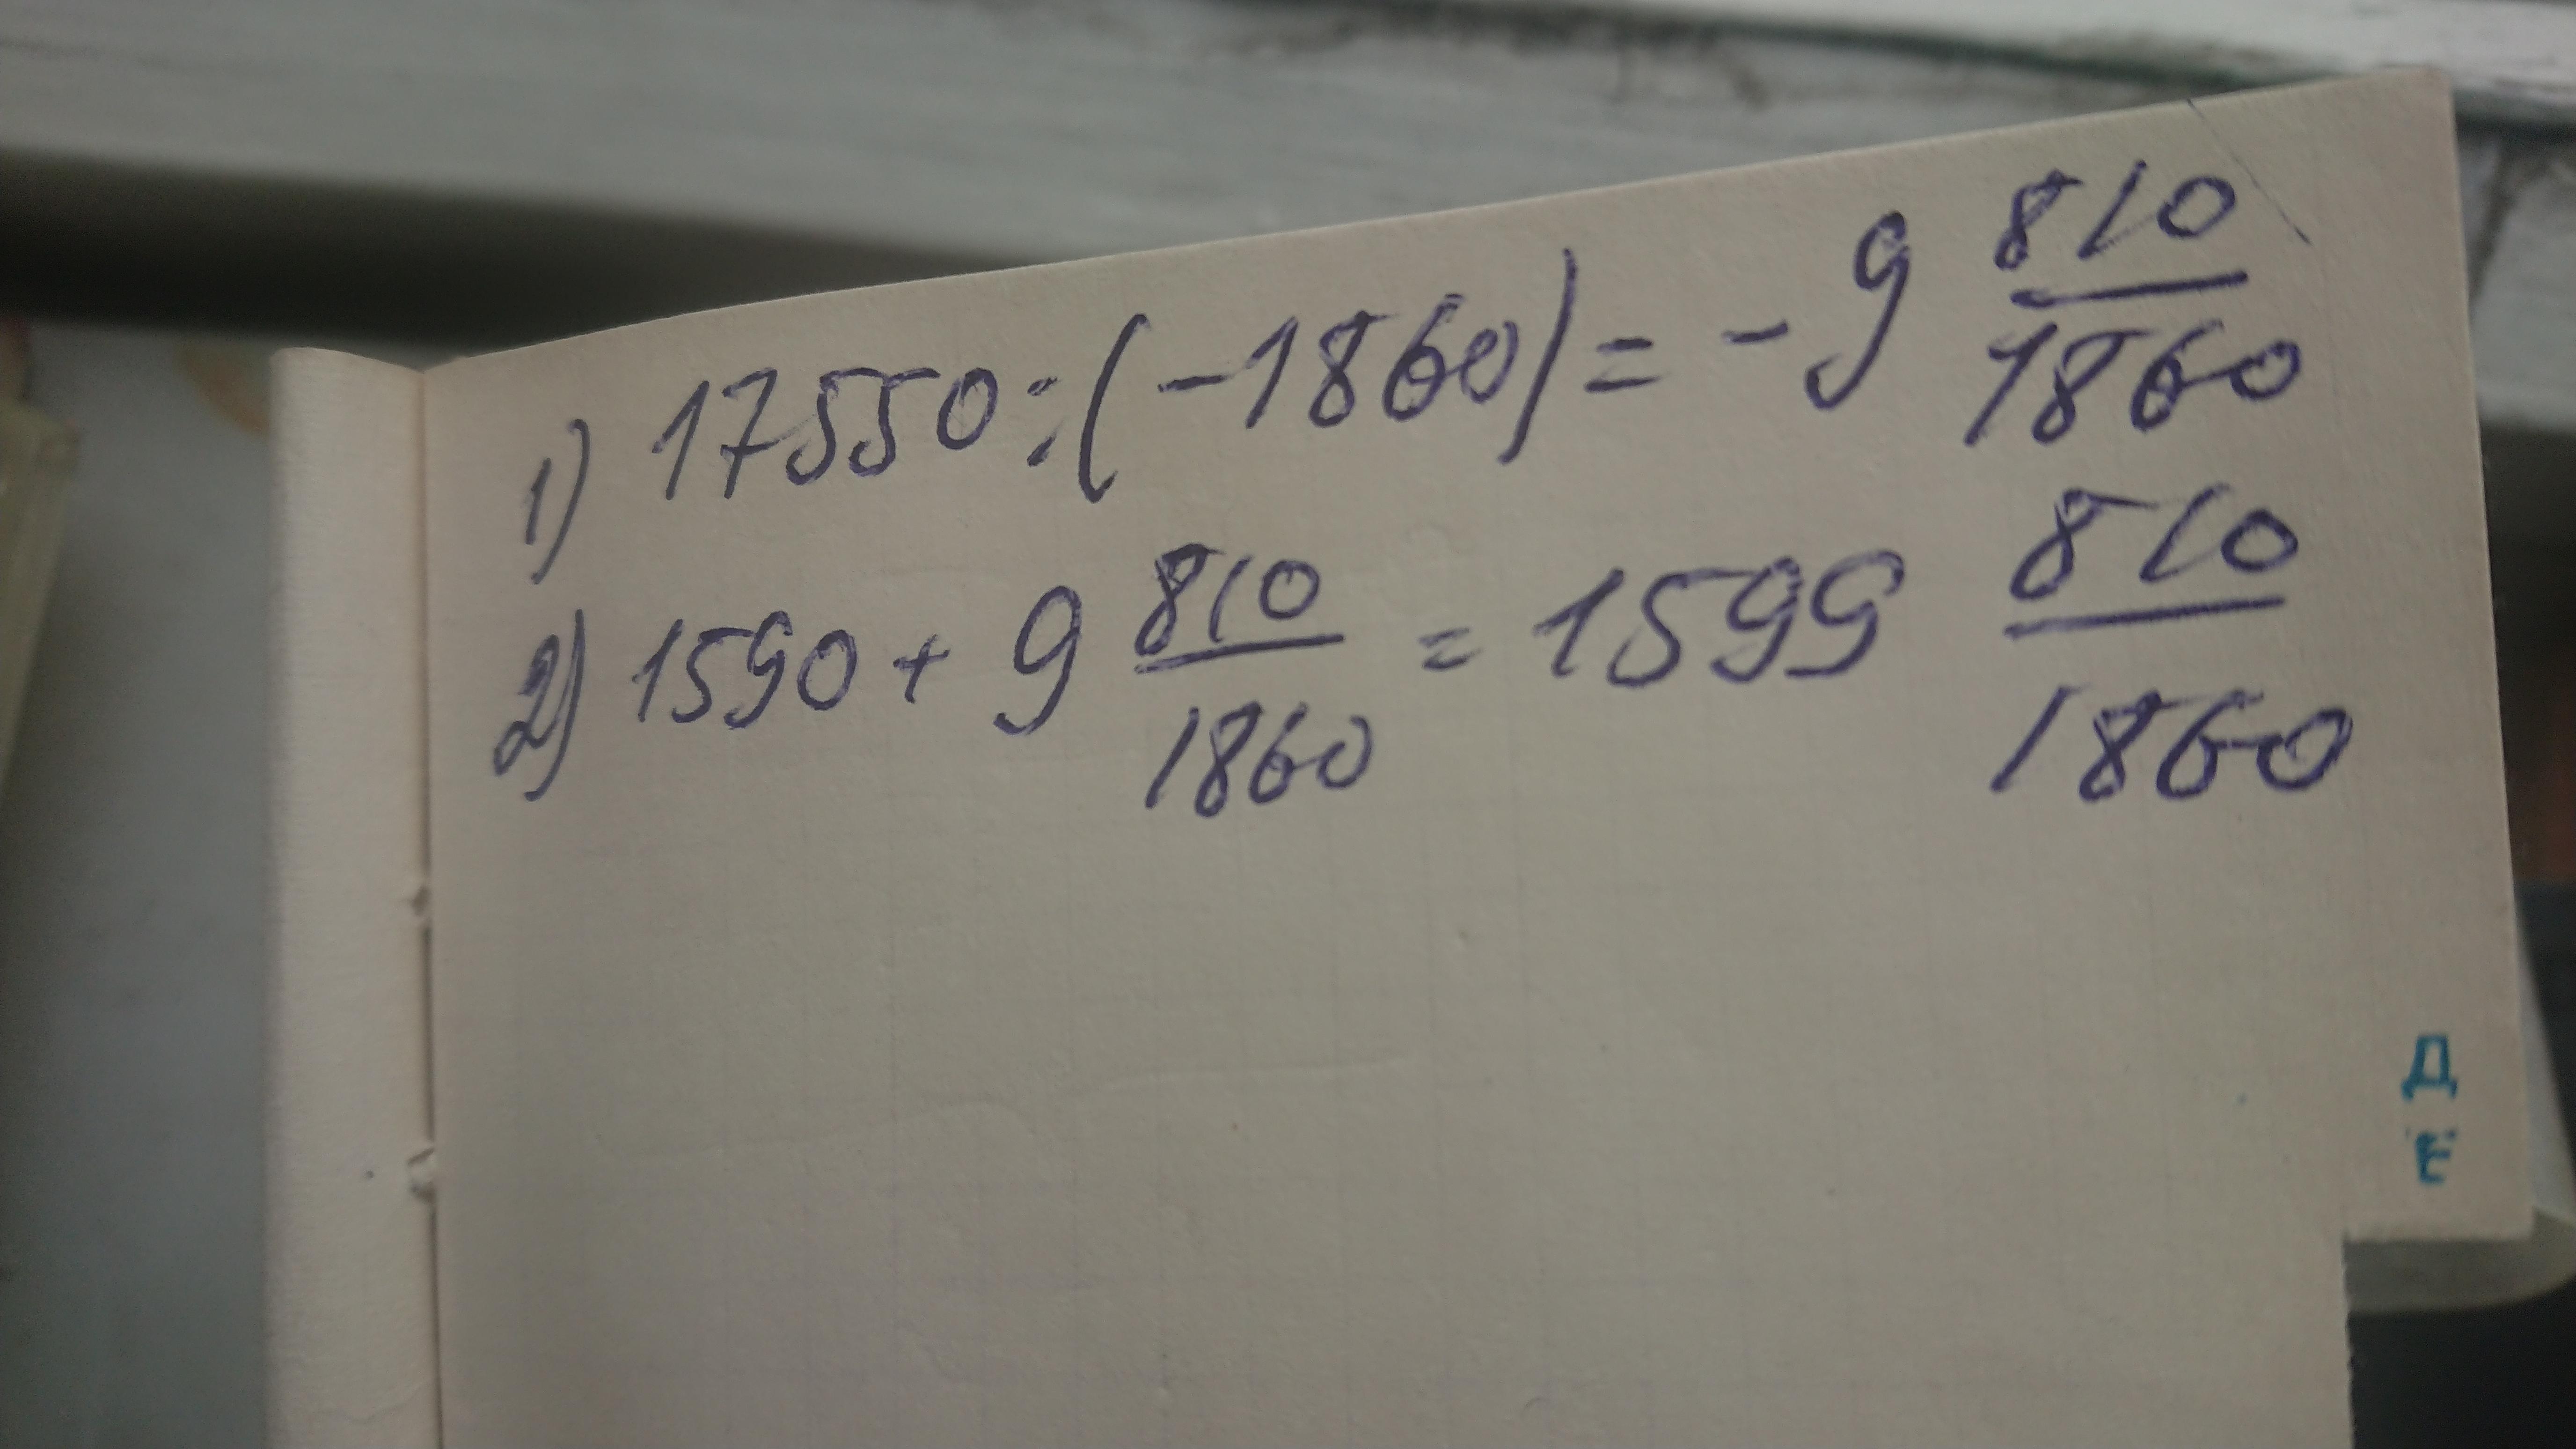 1) 17550 : (-1860) = -9 810/1860
2) 1590 + 9 810/1860 = 1599 810/1860
Д
Ё